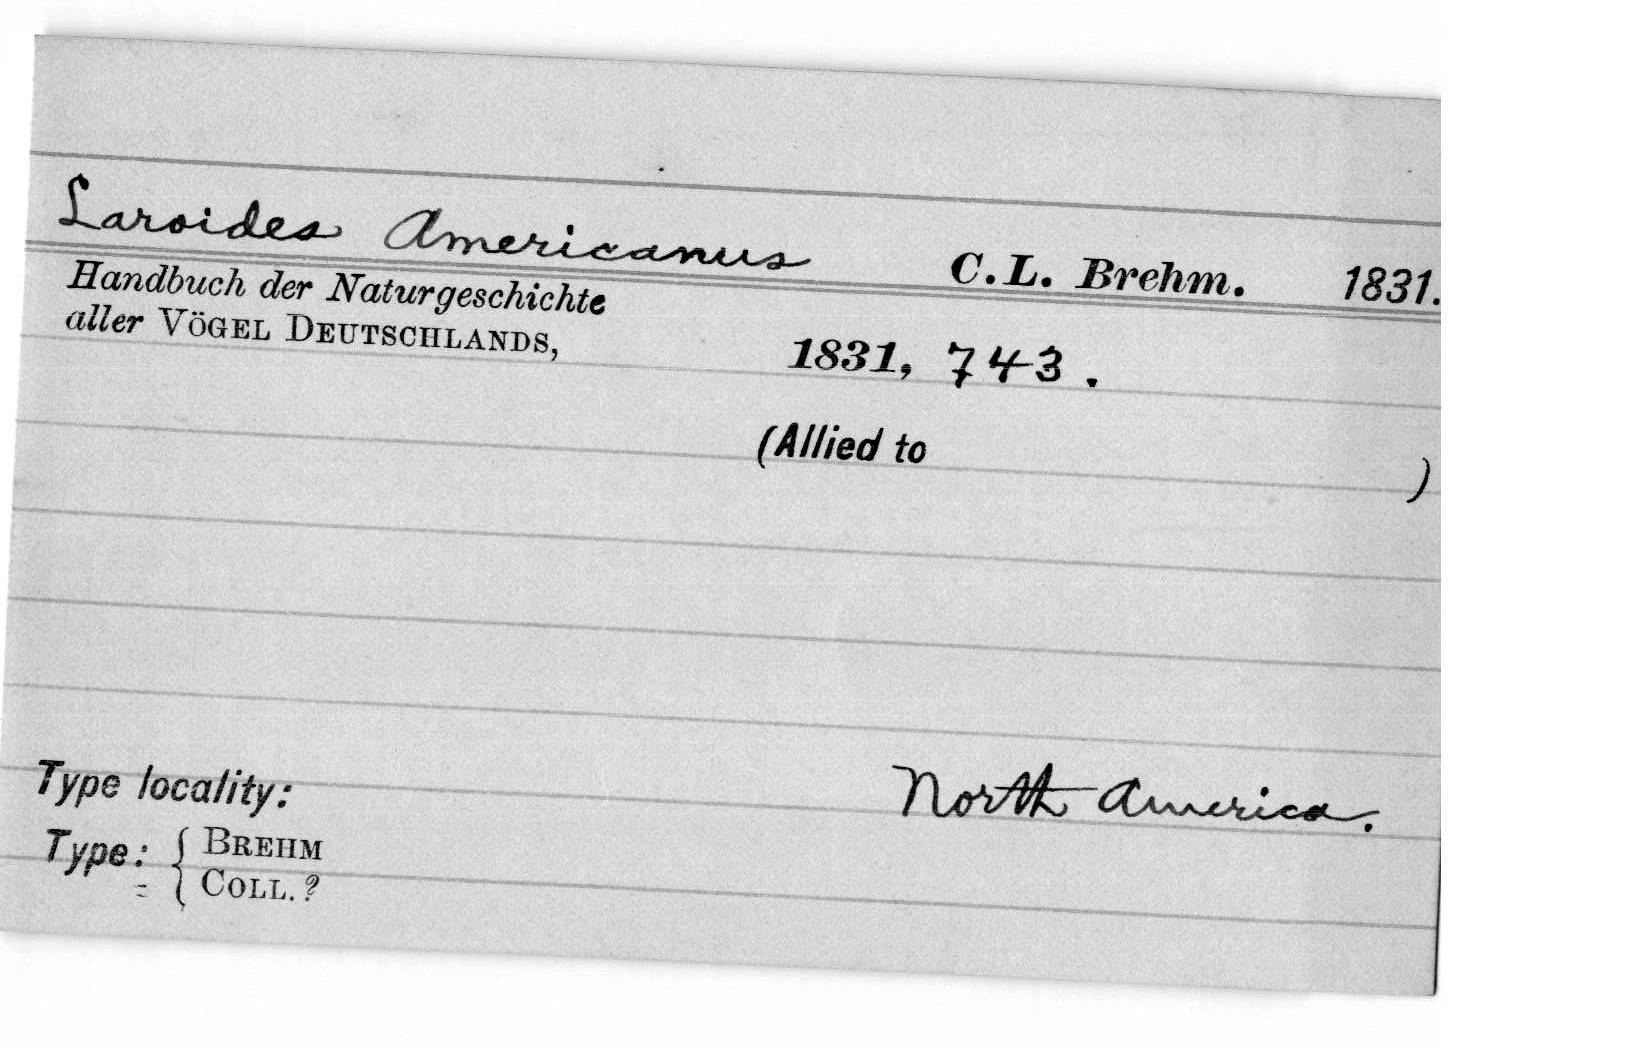 Laroides Americanus C. L. Brehm. 1831.
Handbuch der Naturgeschichte
aller VÖGEL DEUTSCHLANDS, 1831, 743.
(Allied to )
Type locality: North America.
Type: { BREHM
COLL. ?